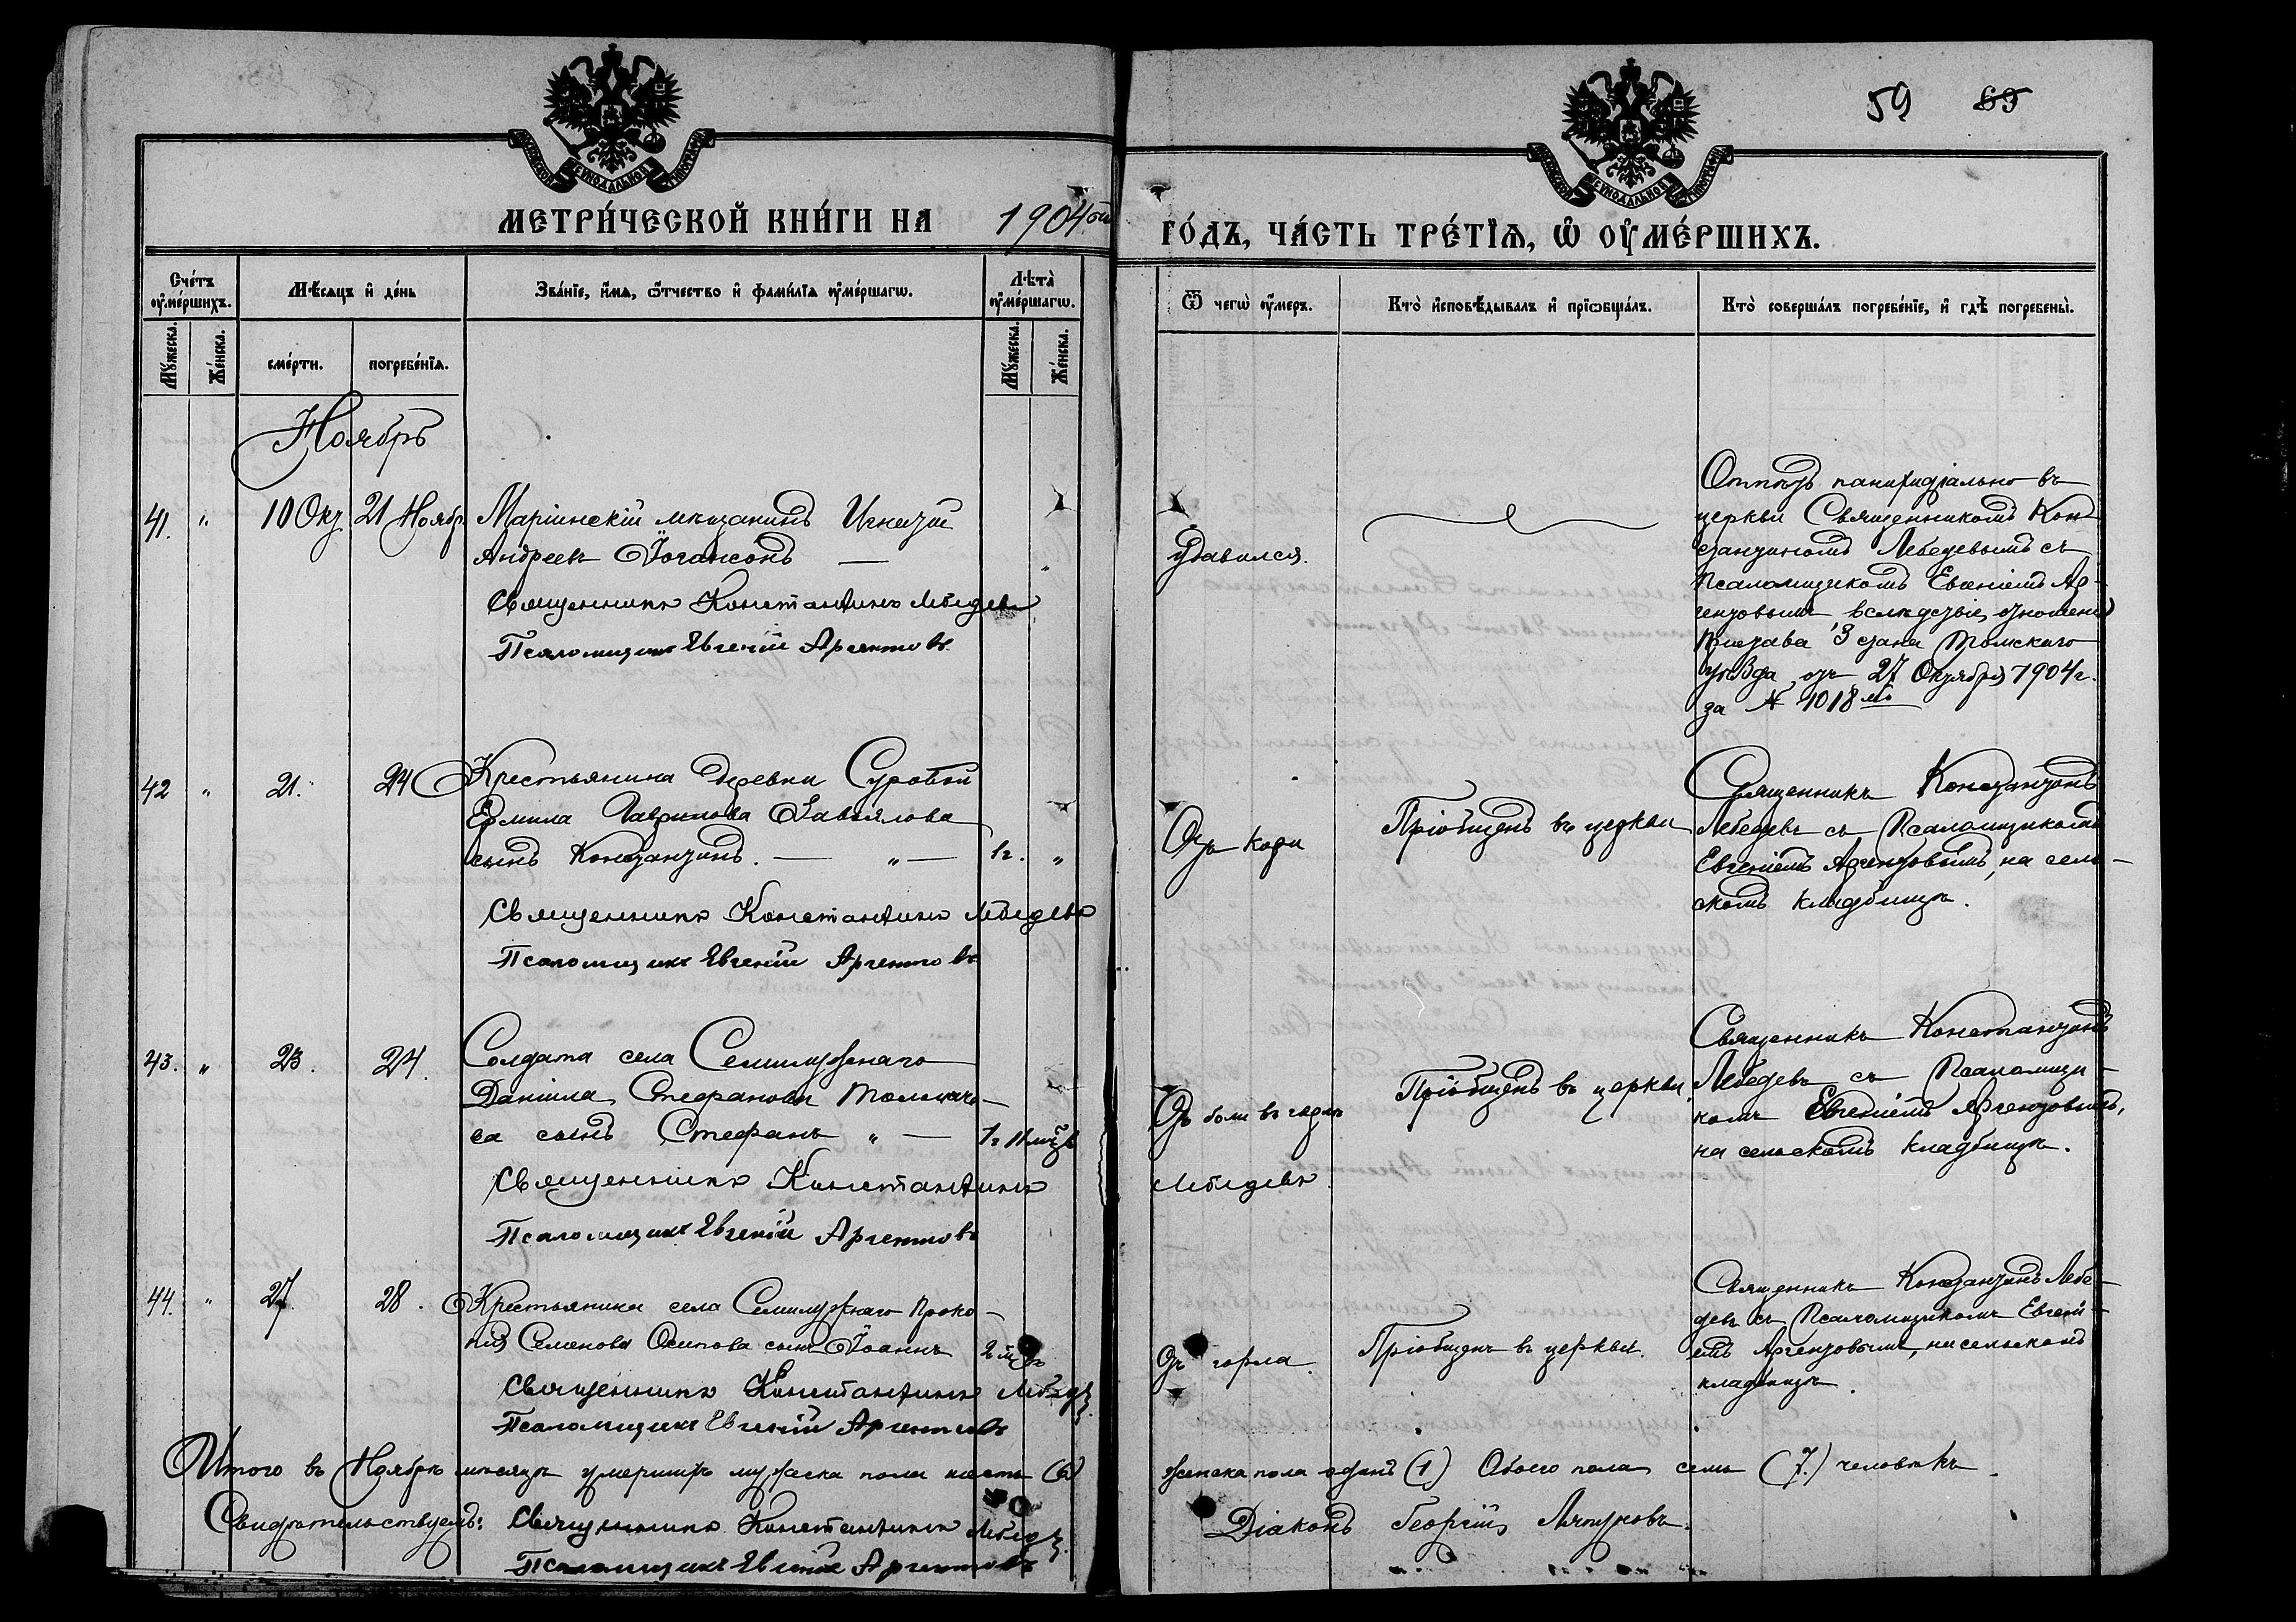 59 69
МЕТРИ́ЧЕСКОЙ КНИ́ГИ НА 1904ый ГО́ДЪ, ЧА́СТЬ ТРЕ́ТІѦ, Ѡ ОУМЕ́РШИХЪ.
Сче́тъ оумéршихъ.
Мѣ́сяцъ и де́нь
Зва́ніе, и́мѧ, ѻ́тчество и фами́лїѧ оуме́ршагѡ.
Лѣ́та оуме́ршагѡ.
Ѿ чегѡ̀ оу́меръ.
Кто̀ и҆сповѣ́дывалъ и҆ прїѡбща́лъ.
Кто̀ соверша́лъ погребе́нїе, и҆ гдѣ̀ погребены̀.
Му́жеска.
Же́нска.
сме́рти.
погребе́нїѧ.
Му́жеска.
Же́нска.
Ноябрь
41. " 10 Окт 21 Ноябр
Маріинскій мѣщанинъ Игнатій
Андреевъ Іогансонъ —
Священникъ Константинъ Лебедевъ
Псаломщикъ Евгеній Аргентовъ
удавился.
Отпѣтъ панихидіально въ
церкви Священникомъ Кон
стантиномъ Лебедевымъ съ
Псаломщикомъ Евгеніемъ Ар-
гентовымъ, вслѣдствіе отношенія
Пристава 3 стана Томскаго
уѣзда, отъ 27 Октября 1904 г.
за № 1018мъ
42 " 21. 24
Крестьянина деревни Суровой
Ермила Гаврилова Завьялова
сынъ Константинъ. — " — 1 г. "
Священникъ Константинъ Лебедевъ
Псаломщикъ Евгеній Аргентовъ
Отъ кори
Пріобщенъ въ церкви
Священникъ Константинъ
Лебедевъ съ Псаломщикомъ
Евгеніемъ Аргентовымъ, на сель-
скомъ кладбищѣ.
43. " 23. 24.
Солдата села Семилужнаго
Даніила Стефанова Толмачо-
ва сынъ Стефанъ " — 1 г 11 мцъ
Священникъ Константинъ Лебедевъ
Псаломщикъ Евгеній Аргентовъ
Отъ боли въ горлѣ
Пріобщенъ въ церкви.
Священникъ Константинъ
Лебедевъ съ Псаломщи-
комъ Евгеніемъ Аргентовымъ,
на сельскомъ кладбищѣ.
44. " 27. 28.
Крестьянина села Семилужнаго Проко-
пія Семенова Осипова сынъ Іоаннъ 2
Священникъ Константинъ Лебедевъ
Псаломщикъ Евгеній Аргентовъ
Отъ горла.
Пріобщенъ въ церкви.
Священникъ Константинъ Лебе-
девъ съ Псаломщикомъ Евгені-
емъ Аргентовымъ, на сельскомъ
кладбищѣ.
Итого въ Ноябрѣ мѣсяцѣ умершихъ мужеска пола шесть (6) женска пола одинъ (1) Обоего пола семь (7.) человѣкъ.
Свидѣтельствуемъ: Священникъ Константинъ Лебедевъ
Діаконъ Георгій
Псаломщикъ Евгеній Аргентовъ